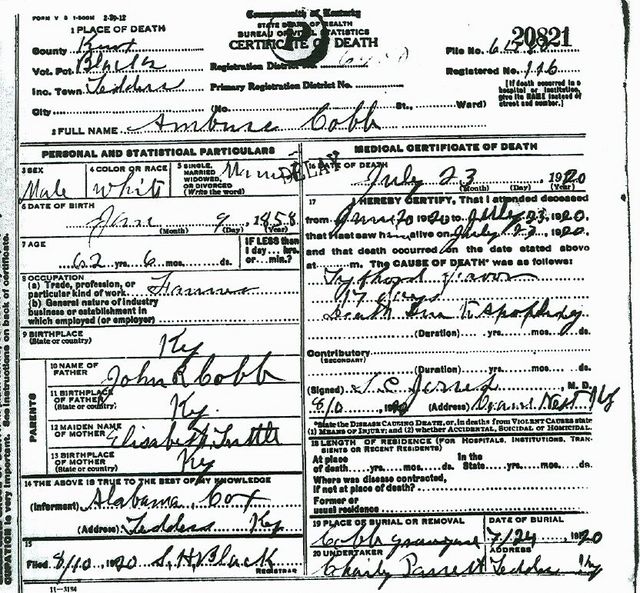 FORM V S 1-500M 2-29-12
Commonwealth of Kentucky
STATE BOARD OF HEALTH
BUREAU OF VITAL STATISTICS
CERTIFICATE OF DEATH
20821
1 PLACE OF DEATH
County Knox
File No.
Vot. Pct.
Registration District No.
Registered No. 116
Inc. Town
Primary Registration District No.
[If death occurred in a hospital or institution, give its NAME instead of street and number.]
City (No. St., Ward)
2 FULL NAME Ambrose Cobb
PERSONAL AND STATISTICAL PARTICULARS
3 SEX Male
4 COLOR OR RACE White
5 SINGLE, MARRIED WIDOWED, OR DIVORCED (Write the word)
DELAY
6 DATE OF BIRTH
9, 1858
(Month) (Day) (Year)
7 AGE
62 yrs. 6 mos. ds.
IF LESS than 1 day, hrs. or min.?
8 OCCUPATION
(a) Trade, profession, or particular kind of work Farmer
(b) General nature of industry
business or establishment in
which employed (or employer)
9 BIRTHPLACE
(State or country) Ky
PARENTS
10 NAME OF FATHER John R Cobb
11 BIRTHPLACE OF FATHER (State or country) Ky.
12 MAIDEN NAME OF MOTHER Elisabeth Tuttle
13 BIRTHPLACE OF MOTHER (State or country) Ky
14 THE ABOVE IS TRUE TO THE BEST OF MY KNOWLEDGE
(Informent) Alabama Cox
(Address) Ky
15
Filed 8/10, 1920 S. H. Black
REGISTRAR
11-3184
MEDICAL CERTIFICATE OF DEATH
16 DATE OF DEATH
July 23 1920
(Month) (Day) (Year)
17 I HEREBY CERTIFY, That I attended deceased
from 1920 to July 23, 1920
that I last saw him alive on July 1920
and that death occurred on the date stated above
at m. The CAUSE OF DEATH* was as follows:
Typhoid fever
17 days
(Duration) yrs. mos. ds.
Contributory
(SECONDARY)
(Duration) yrs. mos. ds.
(Signed) M. D.
8/10, 1920 (Address) Ky
*State the DISEASE CAUSING DEATH, or, in deaths from VIOLENT CAUSES state
(1) MEANS OF INJURY; and (2) whether ACCIDENTAL, SUICIDAL or HOMICIDAL
18 LENGTH OF RESIDENCE (FOR HOSPITALS, INSTITUTIONS, TRANSIENTS OR RECENT RESIDENTS)
At place of death yrs. mos. ds. In the State yrs. mos. ds.
Where was disease contracted,
If not at place of death?
Former or
usual residence
19 PLACE OF BURIAL OR REMOVAL Cobb
DATE OF BURIAL 7/24, 1920
20 UNDERTAKER Charily Parrett
ADDRESS Ky
OCCUPATION is very important. See instructions on back of certificate.